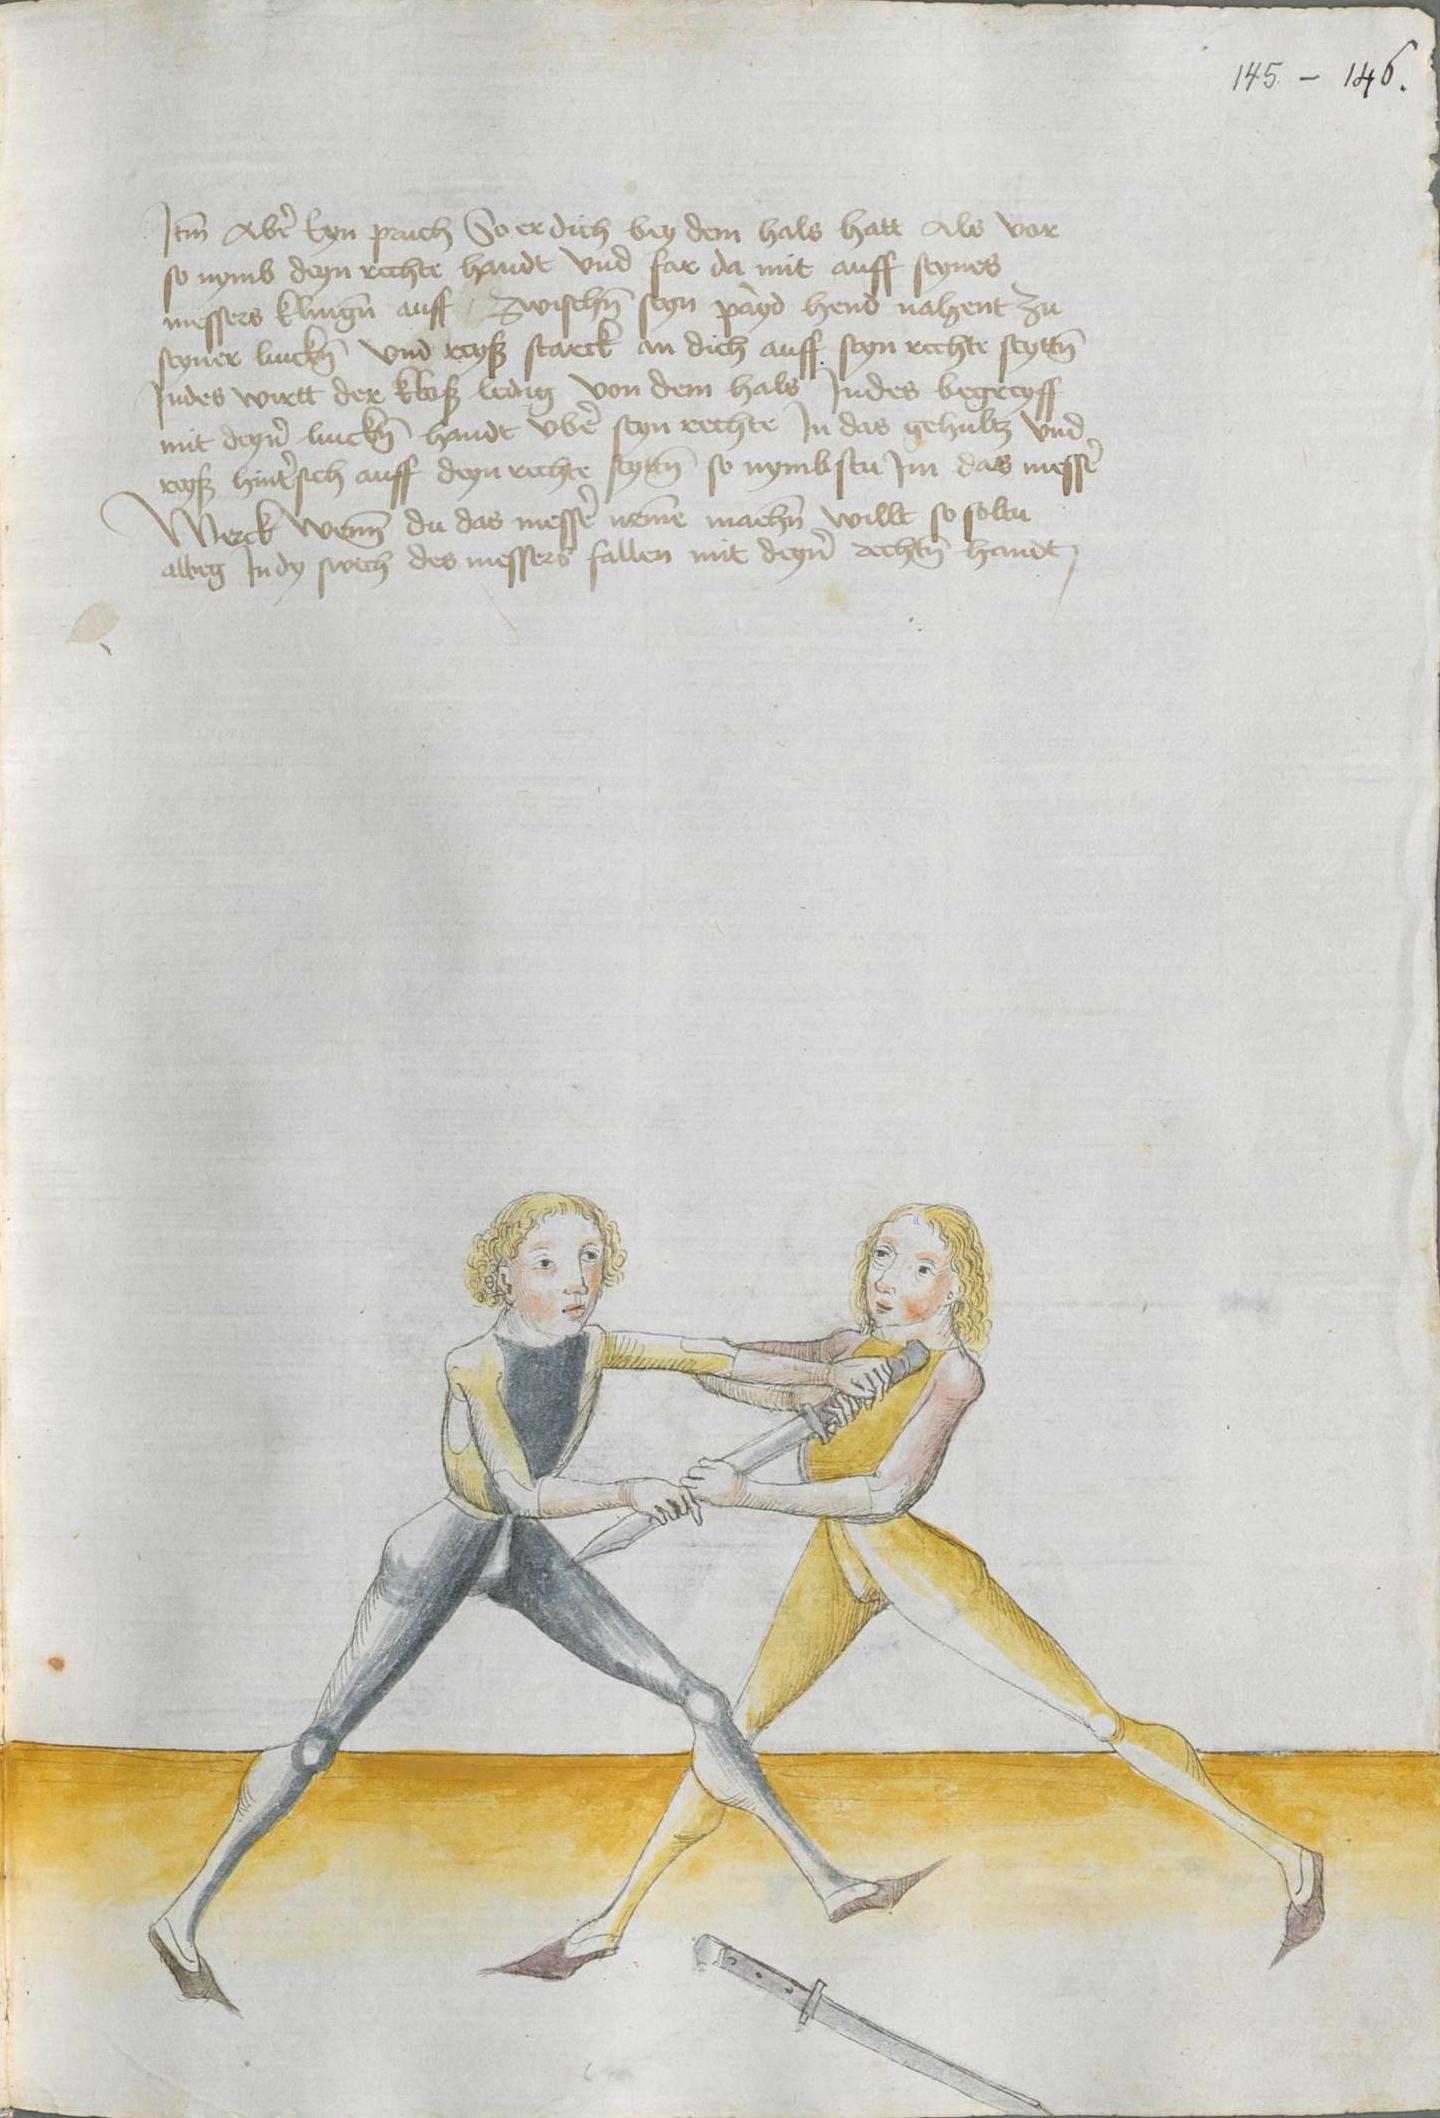 145 – 146.
Itm̄ Aber̛ Eyn pruch So er dich bey dem hals hatt Als vor
so nymb deyn rechte handt vnd far da mit auff seynes
messers klingn̄ auff Zwischn̄ seyn payd hend nahent zu
seyner linckn̄ vnd reyß starck an dich auff seyn rechte seyttn̄
Indes wirtt der kloß ledig von dem hals Indes begreyff
mit deyn̄ linckn̄ handt vber̛ seyn rechte In das gehultz vnd
reyß hinter̛sich auff deyn rechte seyttn̄ so nymbstu Im das messer̛
Merck Wenn̄ du das messer̛ neme machn̄ willt so soltu
alberg In dy swech des messers fallen mit deyn̄ rechtn̄ handt